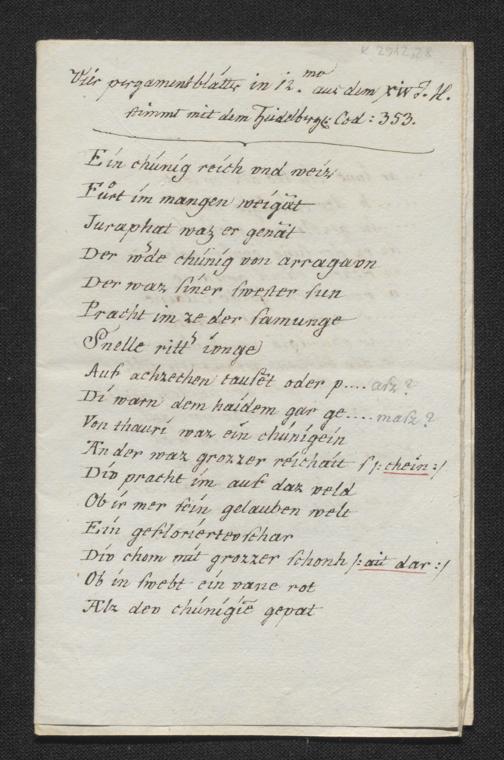 K 2912,28
Vier pergamentblätter in 12.mo aus dem XIV J. H.
stimmt mit dem Heidelberger Cod: 353.
Ein chúnig reich vnd weiz
Fůrt im mangen weigät
Juraphat waz er genät
Der w'de chúnig von arragavn
Der waz sinér swester sun
Pracht im ze der samunge
Snelle ritt' ivnge
Auf achzechen tausēt oder p.... asz?
Di warn dem haidem gar ge.... masz?
Von thauri waz ein chúnigein
An der waz grozzer reichait s/: chein :/
Div pracht im auf daz veld
Ob ir mer sein gelauben welt
Ein geflorierter schar
Div chom mit grozzer schonh /: ait dar :/
Ob in swebt ein vane rot
Alz dev chúnigiē gepat